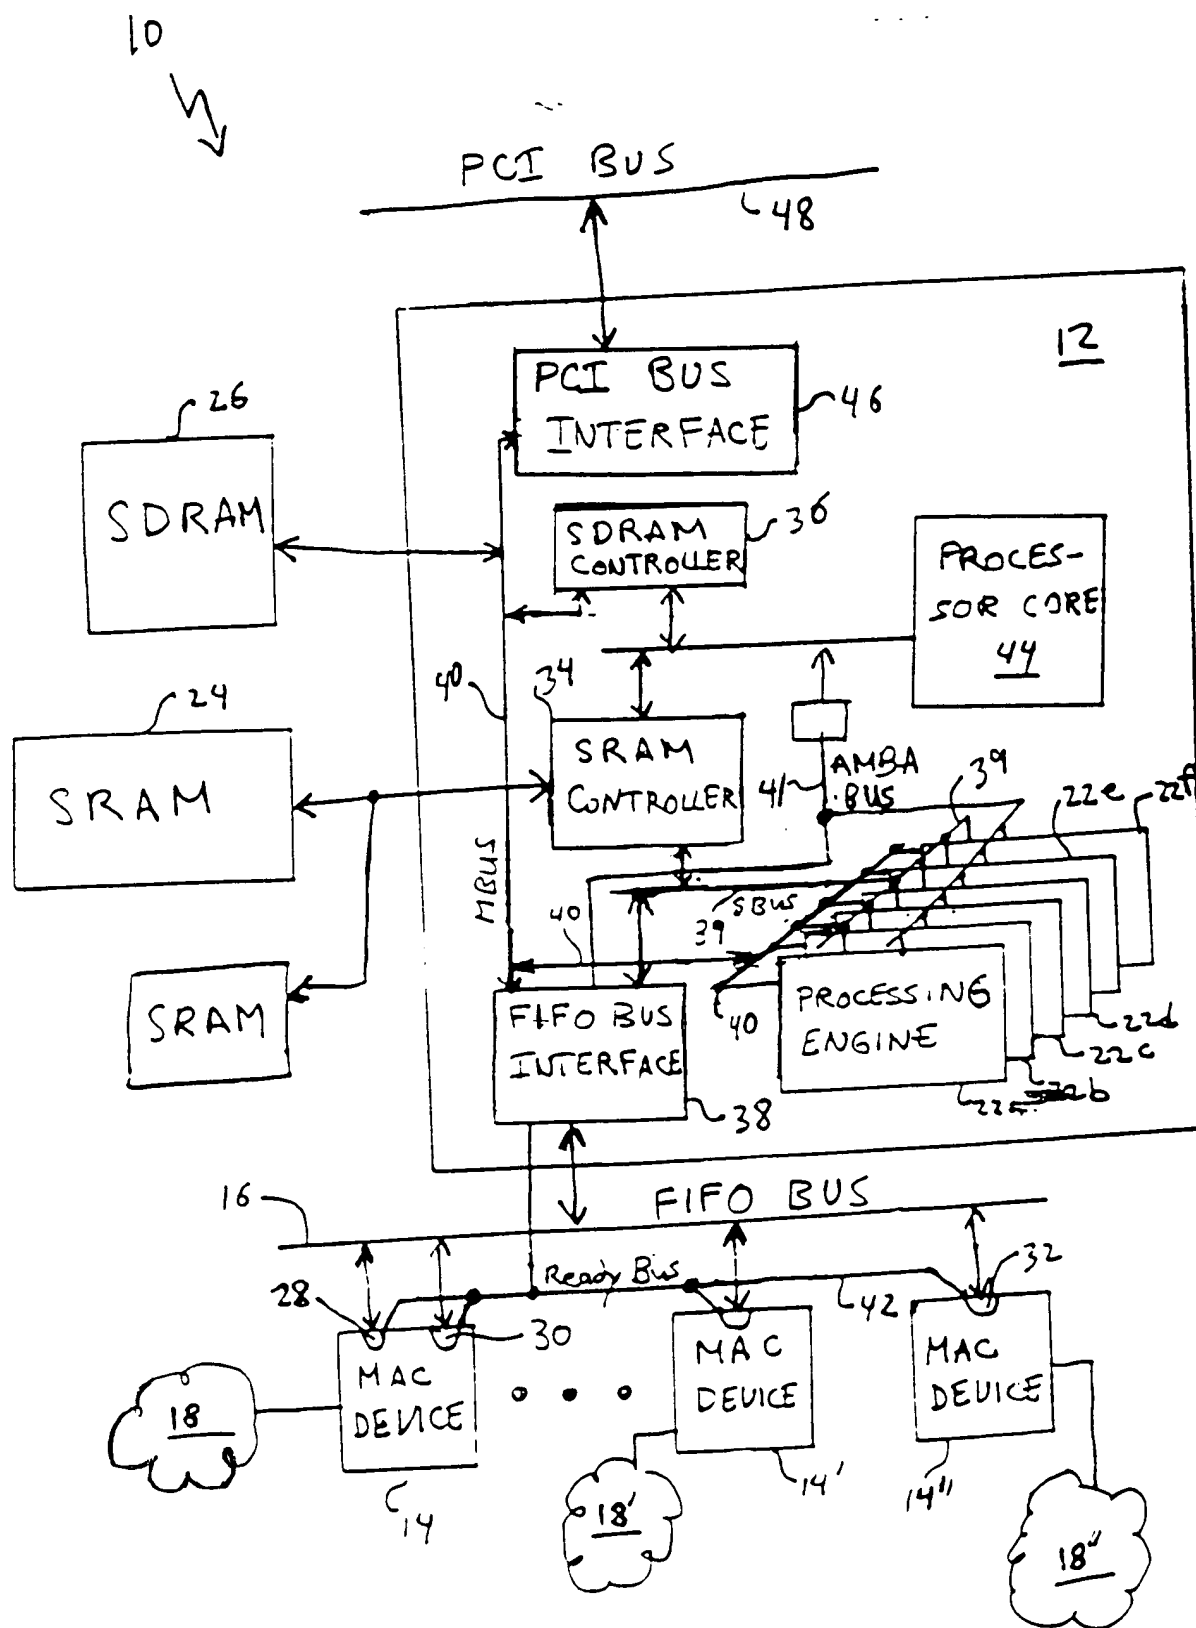 10
PCI BUS
48
12
PCI BUS
INTERFACE
46
26
SDRAM
SDRAM
CONTROLLER
36
PROCES-
SOR CORE
44
40
34
24
SRAM
SRAM
CONTROLLER
41
AMBA
BUS
39
22e
22f
MBUS
SBUS
39
40
39
40
SRAM
FIFO BUS
INTERFACE
38
PROCESSING
ENGINE
22d
22c
22b
22a
16
FIFO BUS
Ready Bus
28
30
32
42
MAC
DEVICE
MAC
DEVICE
MAC
DEVICE
18
14
14'
14"
18'
18"